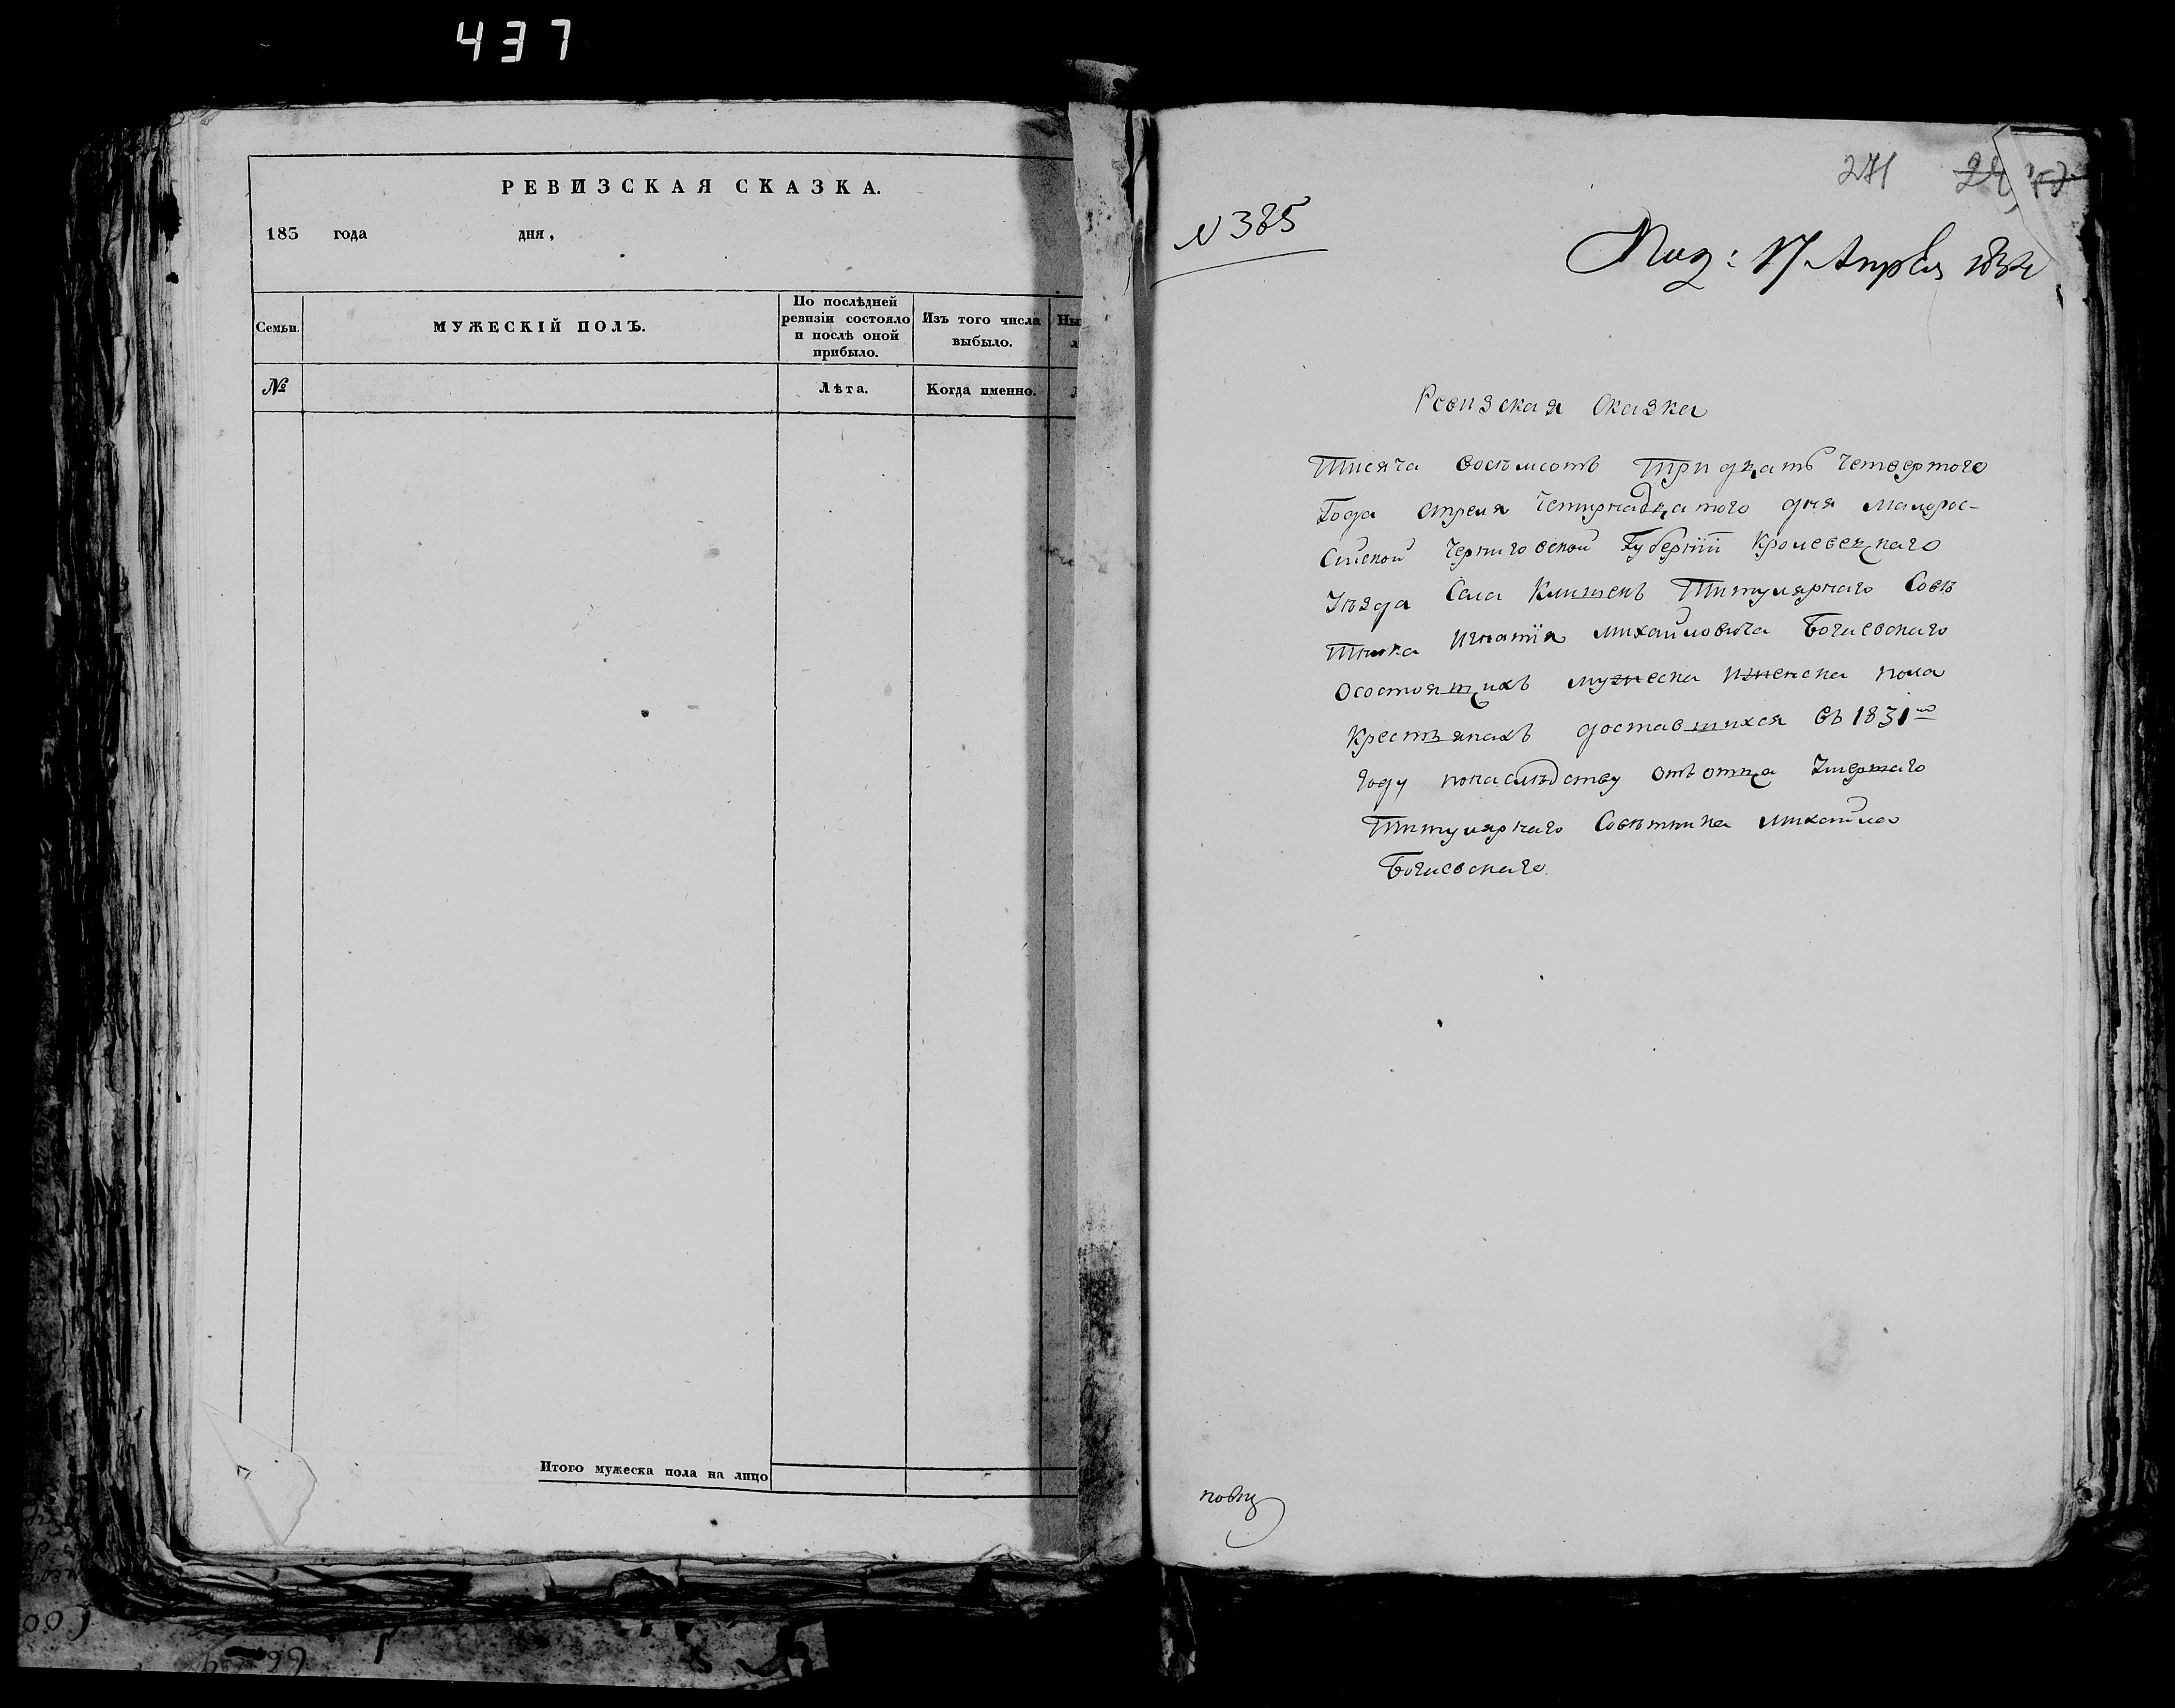 437
РЕВИЗСКАЯ СКАЗКА.
183 года дня,
Семьи.
МУЖЕСКІЙ ПОЛЪ.
По послѣдней
ревизіи состояло
и послѣ оной
прибыло.
Изъ того числа
выбыло.
№
Лѣта.
Когда именно.
Итого мужеска пола на лицо
271
N 385
17 Апрѣля 1834
Ревизская Сказка
Тисяча восѣмсотъ тридцать четвертого
Года апреля четирнадцатого дня малорос-
Сийской Черниговской Губерніи Кролевецкаго
Уѣзда Села Клишекъ Титулярнаго Совѣ
тника Игнатія михайловича Богаевскаго
осостоящихъ мужеска иженска пола
Крестьянахъ доставшихся въ 1831мъ
Году понаслѣдству отъ отца Умершаго
Титулярнаго Совѣтника михайла
Богаевскаго